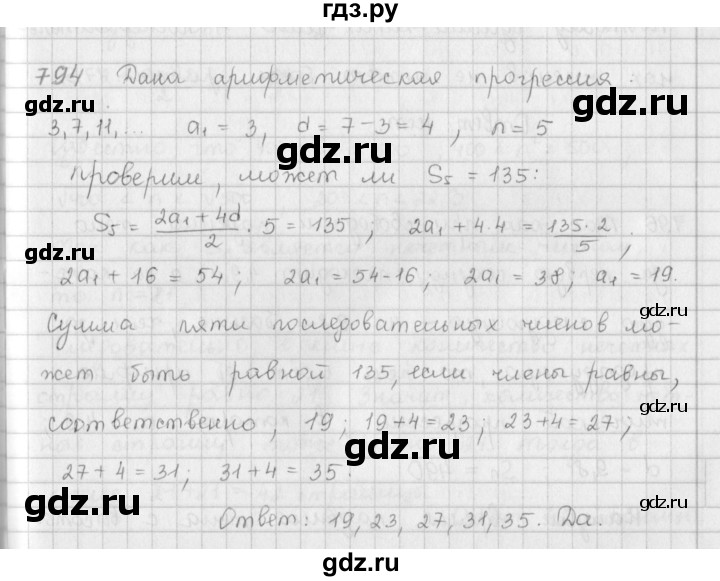 гдз.ру
794 Дана арифметическая прогрессия:
gdz.ru gdz.ru
3, 7, 11, ... a₁ = 3, d = 7 − 3 = 4, n = 5
gdz.ru
Проверим, может ли S₅ = 135:
S₅ = (2a₁ + 4d)/2 · 5 = 135; 2a₁ + 4·4 = (135·2)/5,
gdz.ru gdz.ru
2a₁ + 16 = 54; 2a₁ = 54 - 16; 2a₁ = 38; a₁ = 19.
gdz.ru
Сумма пяти последовательных членов мо-
gdz.ru
жет быть равной 135, если члены равны,
gdz.ru
соответственно, 19; 19 + 4 = 23; 23 + 4 = 27;
gdz.ru
27 + 4 = 31; 31 + 4 = 35.
gdz.ru gdz.ru
Ответ: 19, 23, 27, 31, 35. Да.
gdz.ru